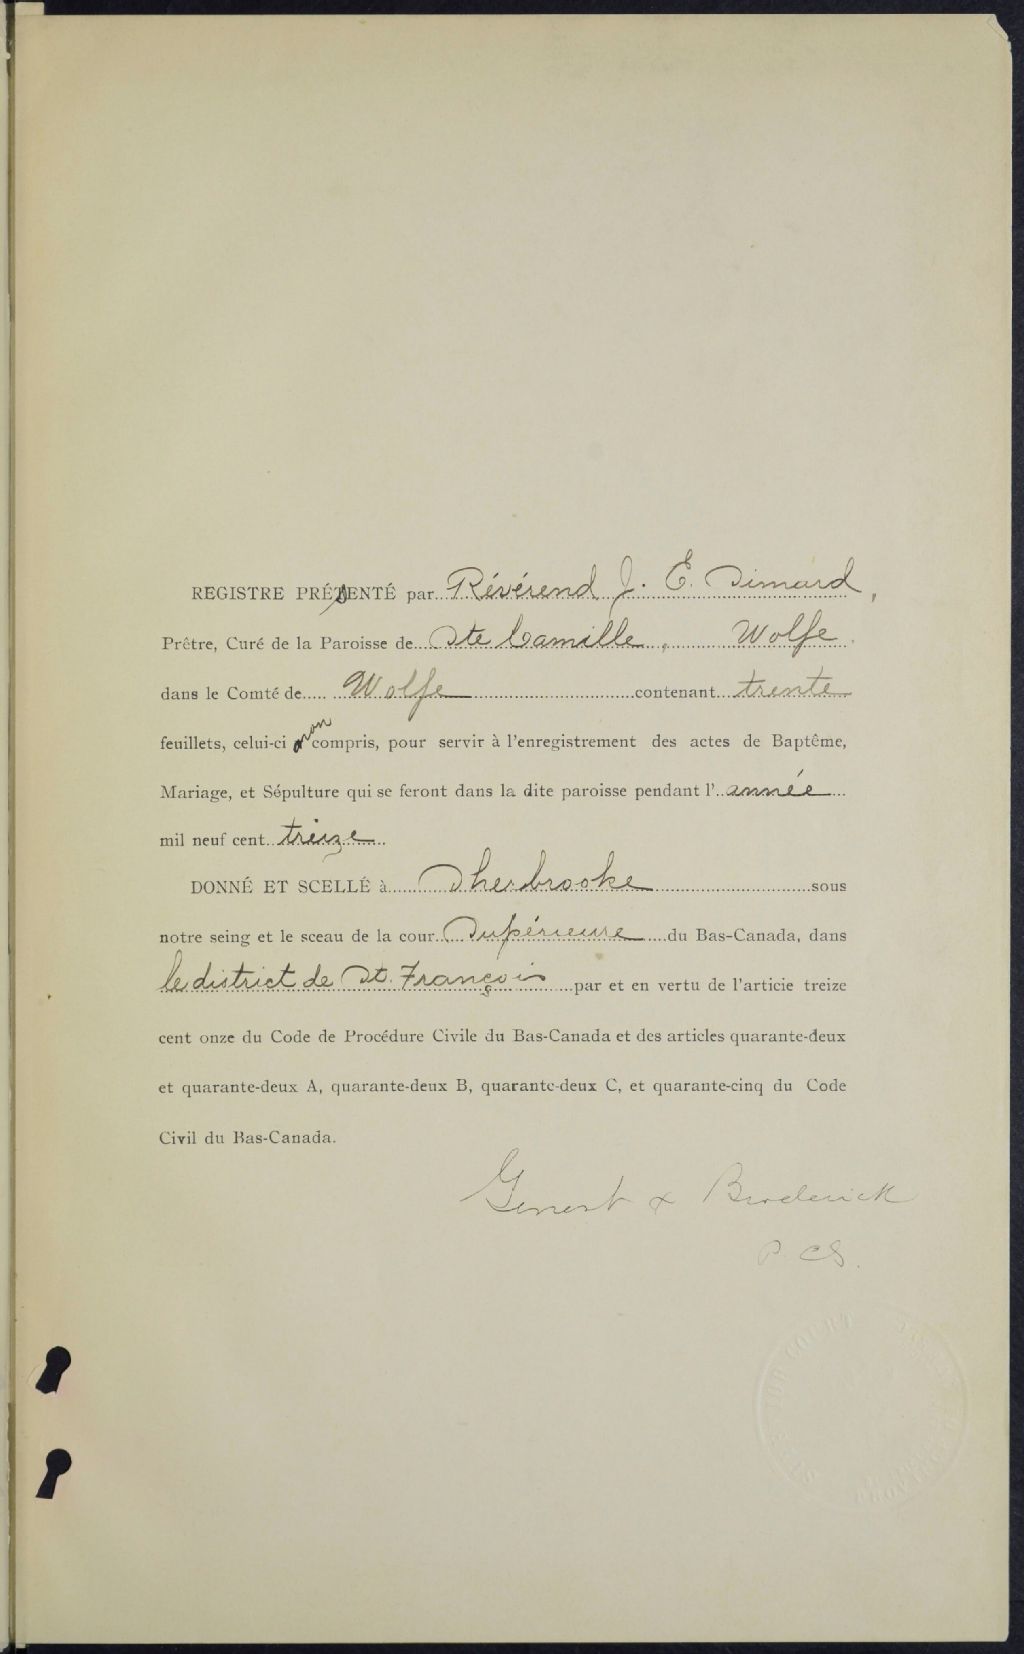 REGISTRE PRÉSENTÉ par Révérend J. E. Simard,
Prêtre, Curé de la Paroisse de Ste Camille, Wolfe
dans le Comté de Wolfe contenant trente
feuillets, celui-ci non compris, pour servir à l'enregistrement des actes de Baptême,
Mariage, et Sépulture qui se feront dans la dite paroisse pendant l'année
mil neuf cent treize
DONNÉ ET SCELLÉ à Sherbrooke sous
notre seing et le sceau de la cour Supérieure du Bas-Canada, dans
le district de St. François par et en vertu de l'articie treize
cent onze du Code de Procédure Civile du Bas-Canada et des articles quarante-deux
et quarante-deux A, quarante-deux B, quarante-deux C, et quarante-cinq du Code
Civil du Bas-Canada.
Genest & Broderick
P. CS.
SUPERIOR COURT
PROVINCE